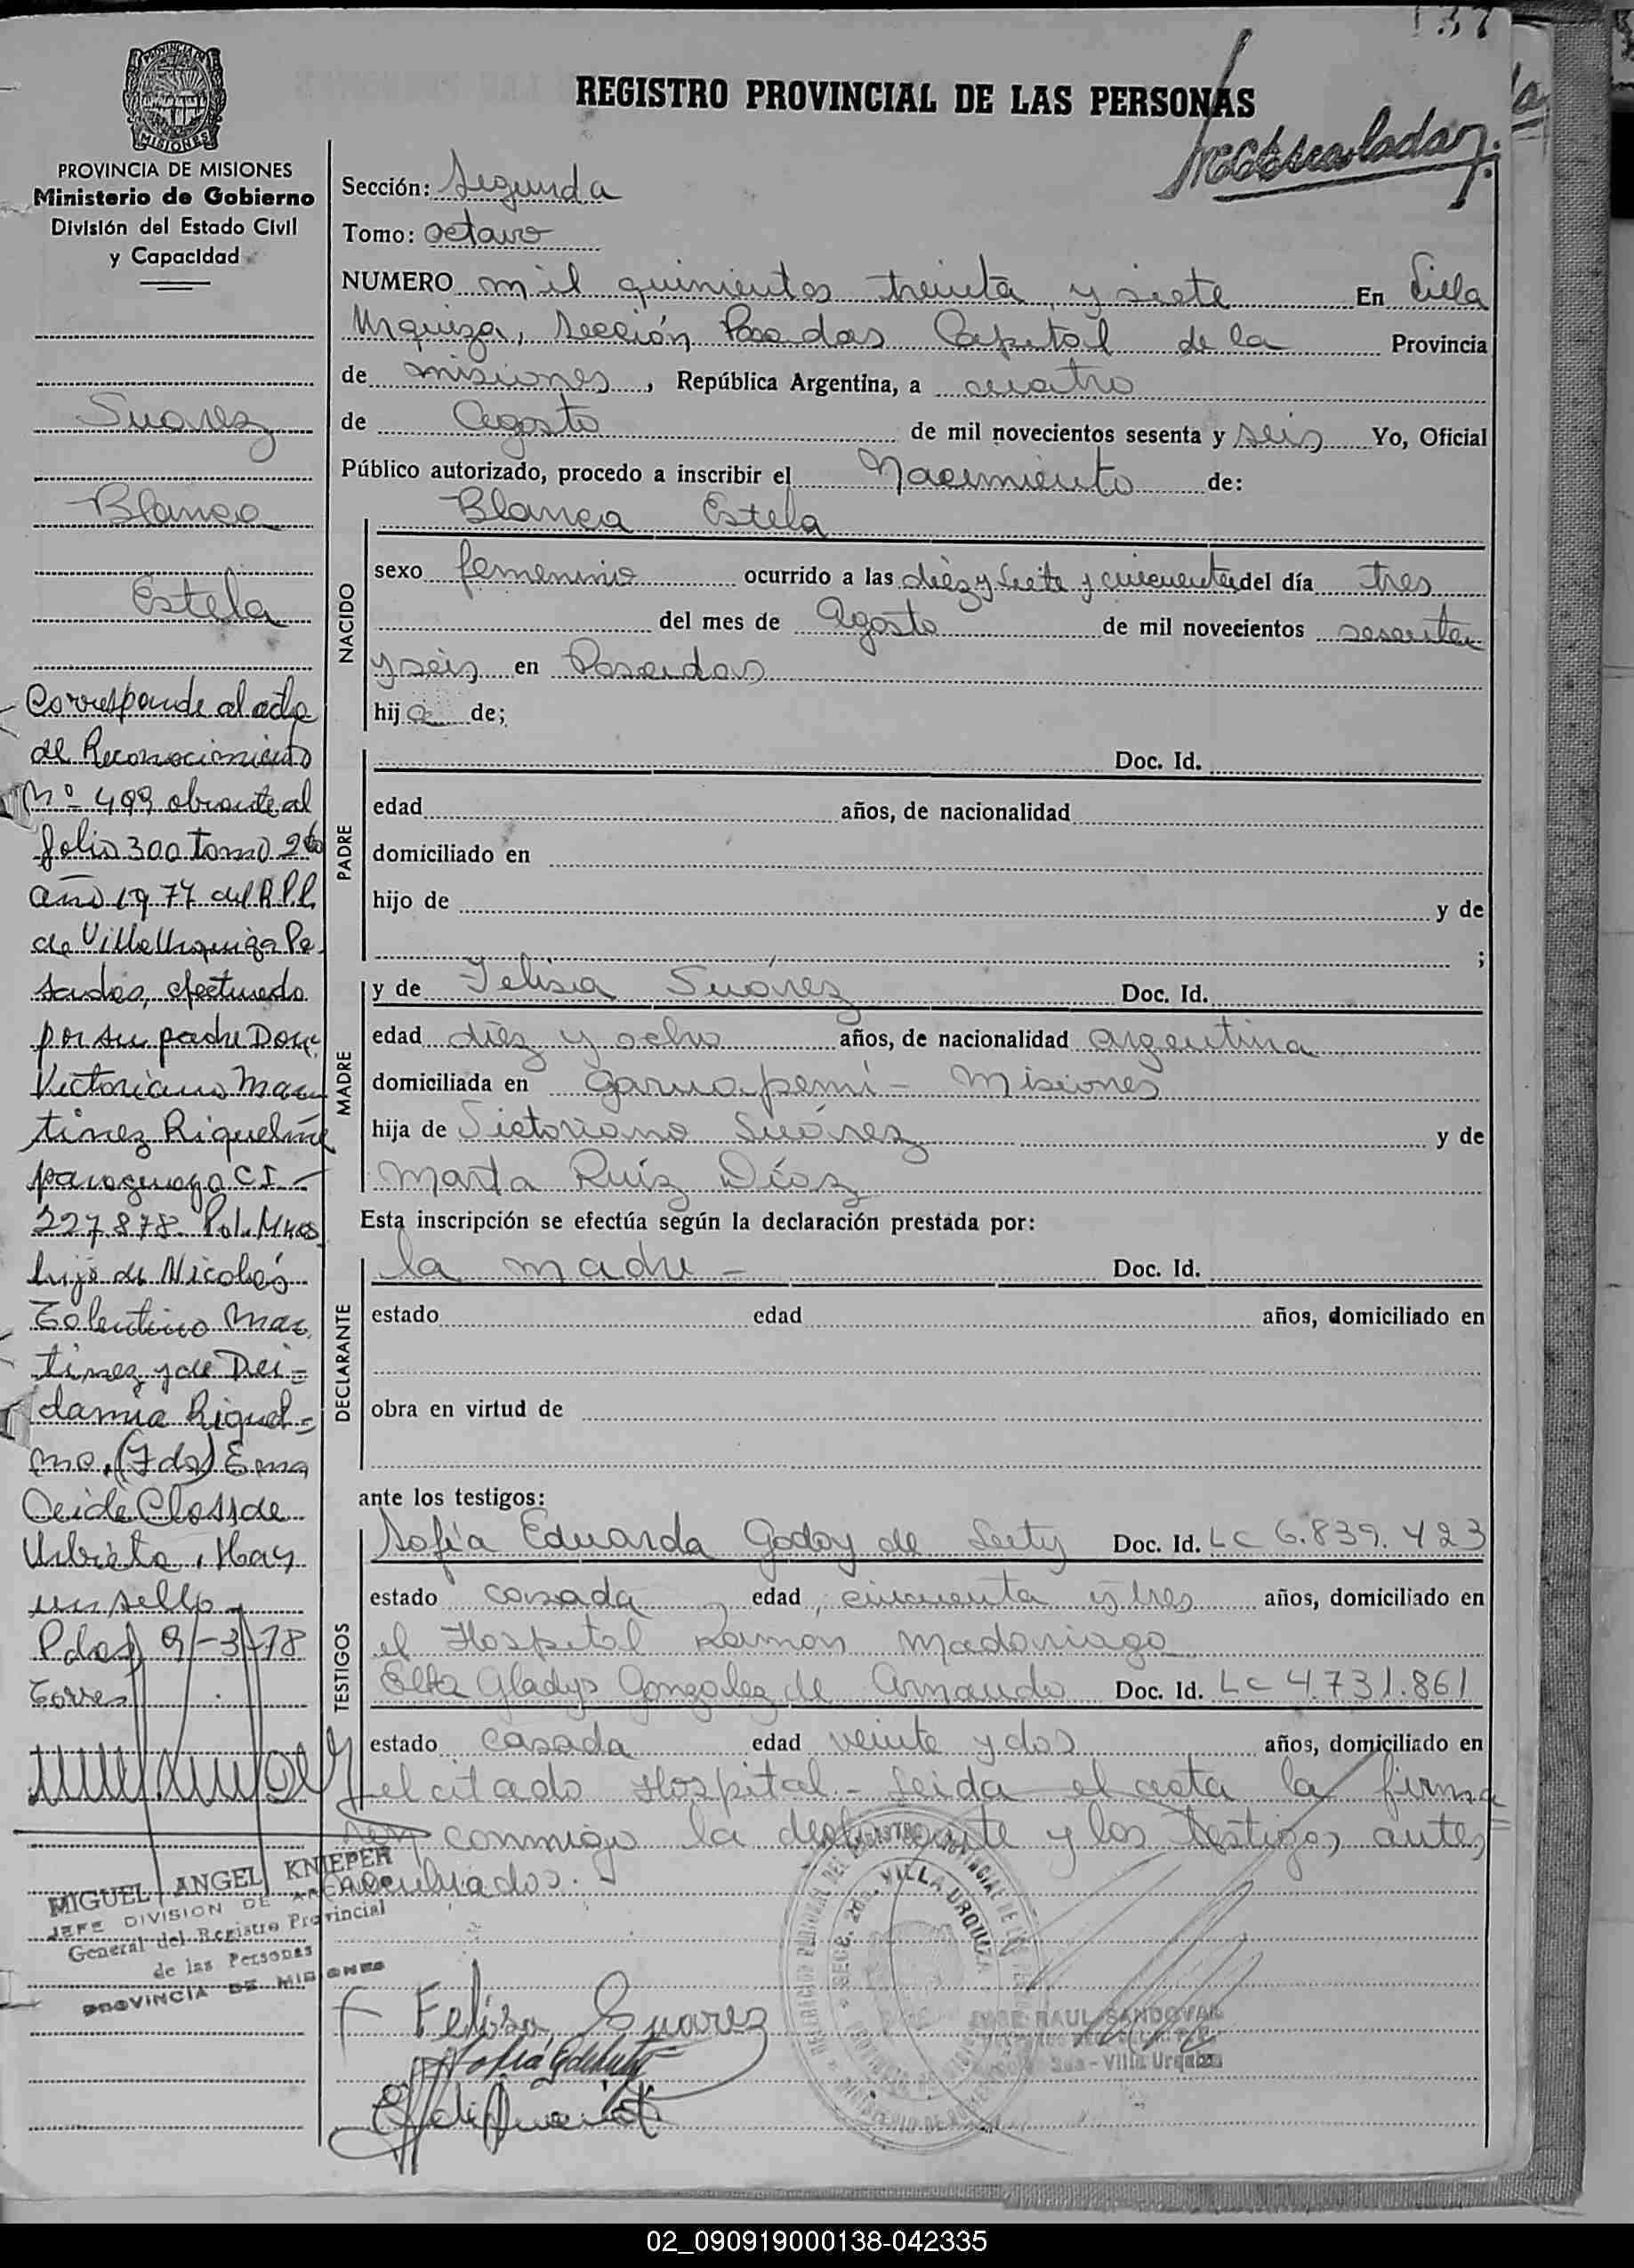 137
REGISTRO PROVINCIAL DE LAS PERSONAS
MISIONES
PROVINCIA DE MISIONES
Ministerio de Gobierno
División del Estado Civil
y Capacidad
Suarez
Blanca
Estela
Corresponde al acta
de Reconocimiento
Nº 499 obrante al
folio 300 tomo 2º
año 1977 del R.P.P.
de Villa Urquiza Po
sadas, efectuado
por su padre Don
Victoriano Mar
tinez Riquelme
paraguayo C I
227.878. Pol. Mnes
hijo de Nicolás
Tolentino Mar
tinez y de Dei=
damia Riquel=
me. (Fdo) Ema
Closs de
Urbieta. Hay
un sello
Pdas 9-3-78
Torres
MIGUEL ANGEL KNIEPER
JEFE DIVISION DE ARCHIVO
General del Registro Provincial
de las Personas
PROVINCIA DE MISIONES
Sección: Segunda
Tomo: Octavo
NUMERO mil quinientos treinta y siete En Villa
Urquiza, Sección Posadas Capital de la Provincia
de Misiones, República Argentina, a cuatro
de Agosto de mil novecientos sesenta y seis Yo, Oficial
Público autorizado, procedo a inscribir el Nacimiento de:
NACIDO
Blanca Estela
sexo femenino ocurrido a las diez y siete y cincuenta del día tres
del mes de Agosto de mil novecientos sesenta
y seis en Posadas
hija de;
PADRE
Doc. Id.
edad años, de nacionalidad
domiciliado en
hijo de y de
;
MADRE
y de Felisa Suárez Doc. Id.
edad diez y ocho años, de nacionalidad argentina
domiciliada en Garuapemí - Misiones
hija de Victoriano Suárez y de
Marta Ruíz Díaz
Esta inscripción se efectúa según la declaración prestada por:
DECLARANTE
la madre - Doc. Id.
estado edad años, domiciliado en
obra en virtud de
ante los testigos:
TESTIGOS
Sofía Eduarda Godoy de Doc. Id. LC 6.839.423
estado casada edad cincuenta y tres años, domiciliado en
el Hospital Ramon Madariaga
Elba Gladys Gonzalez de Doc. Id. LC 4.731.861
estado casada edad veinte y dos años, domiciliado en
el citado Hospital - Leida el acta la firma
con migo la declarante y los testigos antes
nombrados.
SECC. 2da. VILLA URQUIZA
JOSE RAUL SANDOVAL
2da - Villa Urquiza
Felisa Suarez
02_090919000138-042335